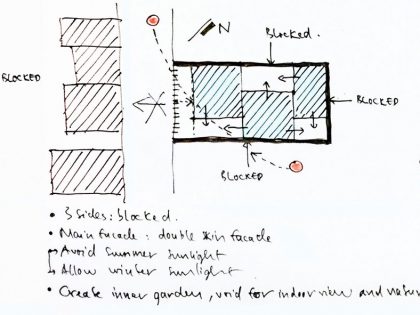 N
Blocked.
BLOCKED
BLOCKED
BLOCKED
• 3 Sides: blocked.
• Main facade: double skin facade
→ Avoid Summer sunlight
→ Allow winter sunlight
• Create inner garden, void for indoor view and natur